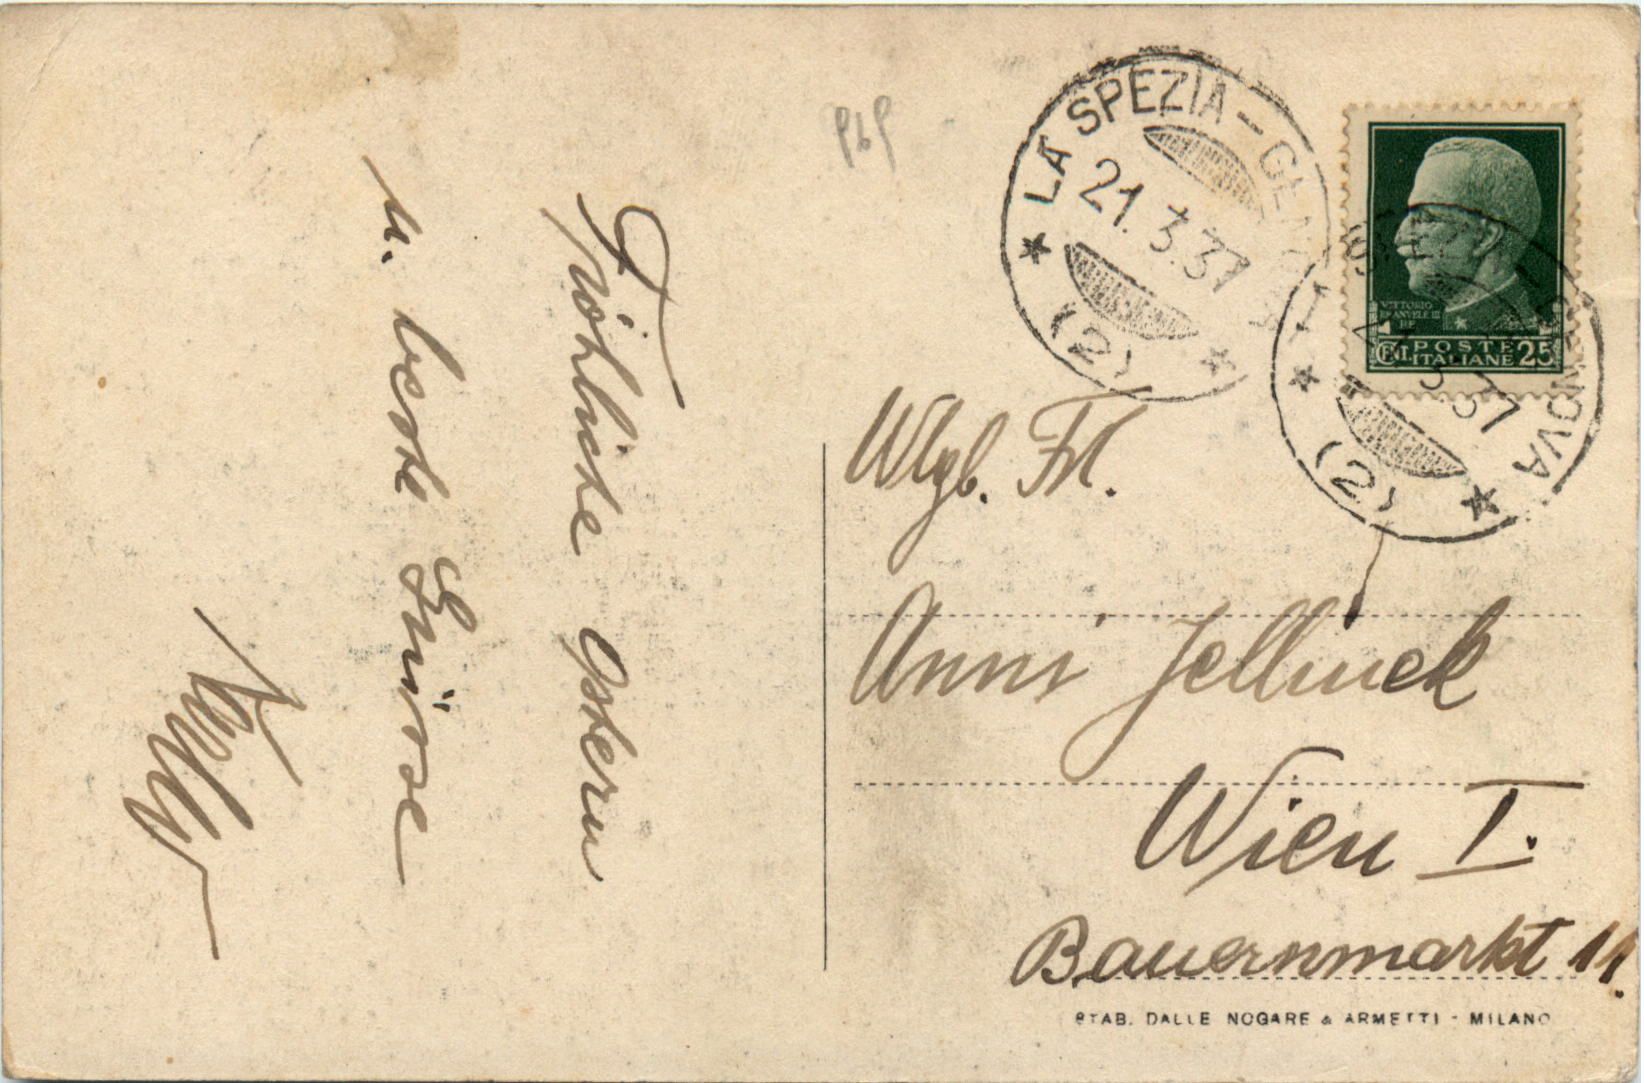 Fröhliche Ostern
u. beste Grüsse
Willy
LA SPEZIA - GENOVA
21. 3. 37
(2)
LA SPEZIA - GENOVA
21. 3. 37
(2)
VITTORIO
EMANVELE III
RE
POSTE
CENT. ITALIANE 25
Wlgb. Frl.
Anni Jellinek
Wien I.
Bauernmarkt 11.
STAB. DALLE NOGARE & ARMETTI - MILANO